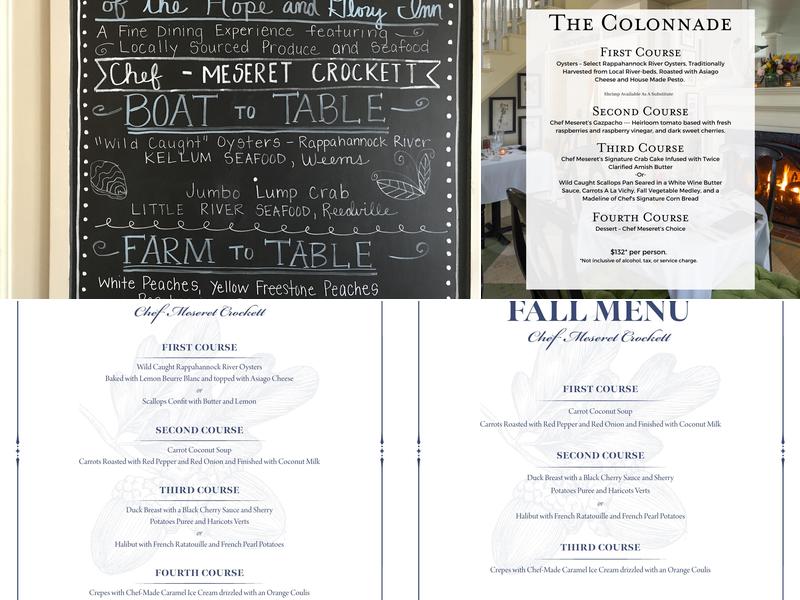 of the Hope and Glory Inn
A Fine Dining Experience featuring
Locally Sourced Produce and Seafood
Chef - MESERET CROCKETT
BOAT TO TABLE
"Wild Caught" Oysters - Rappahannock River
KELLUM SEAFOOD, Weems
Jumbo Lump Crab
LITTLE RIVER SEAFOOD, Reedville
FARM TO TABLE
White Peaches, Yellow Freestone Peaches
THE COLONNADE
FIRST COURSE
Oysters - Select Rappahannock River Oysters, Traditionally
Harvested from Local River-beds, Roasted with Asiago
Cheese and House Made Pesto.
Shrimp Available As A Substitute
SECOND COURSE
Chef Meseret's Gazpacho — Heirloom tomato based with fresh
raspberries and raspberry vinegar, and dark sweet cherries.
THIRD COURSE
Chef Meseret's Signature Crab Cake Infused with Twice
Clarified Amish Butter
-Or-
Wild Caught Scallops Pan Seared in a White Wine Butter
Sauce, Carrots A La Vichy, Fall Vegetable Medley, and a
Madeline of Chef's Signature Corn Bread
FOURTH COURSE
Dessert - Chef Meseret's Choice
$132* per person.
*Not inclusive of alcohol, tax, or service charge.
Chef Meseret Crockett
FIRST COURSE
Wild Caught Rappahannock River Oysters
Baked with Lemon Beurre Blanc and topped with Asiago Cheese
or
Scallops Confit with Butter and Lemon
SECOND COURSE
Carrot Coconut Soup
Carrots Roasted with Red Pepper and Red Onion and Finished with Coconut Milk
THIRD COURSE
Duck Breast with a Black Cherry Sauce and Sherry
Potatoes Puree and Haricots Verts
or
Halibut with French Ratatouille and French Pearl Potatoes
FOURTH COURSE
Crepes with Chef-Made Caramel Ice Cream drizzled with an Orange Coulis
FALL MENU
Chef Meseret Crockett
FIRST COURSE
Carrot Coconut Soup
Carrots Roasted with Red Pepper and Red Onion and Finished with Coconut Milk
SECOND COURSE
Duck Breast with a Black Cherry Sauce and Sherry
Potatoes Puree and Haricots Verts
or
Halibut with French Ratatouille and French Pearl Potatoes
THIRD COURSE
Crepes with Chef-Made Caramel Ice Cream drizzled with an Orange Coulis